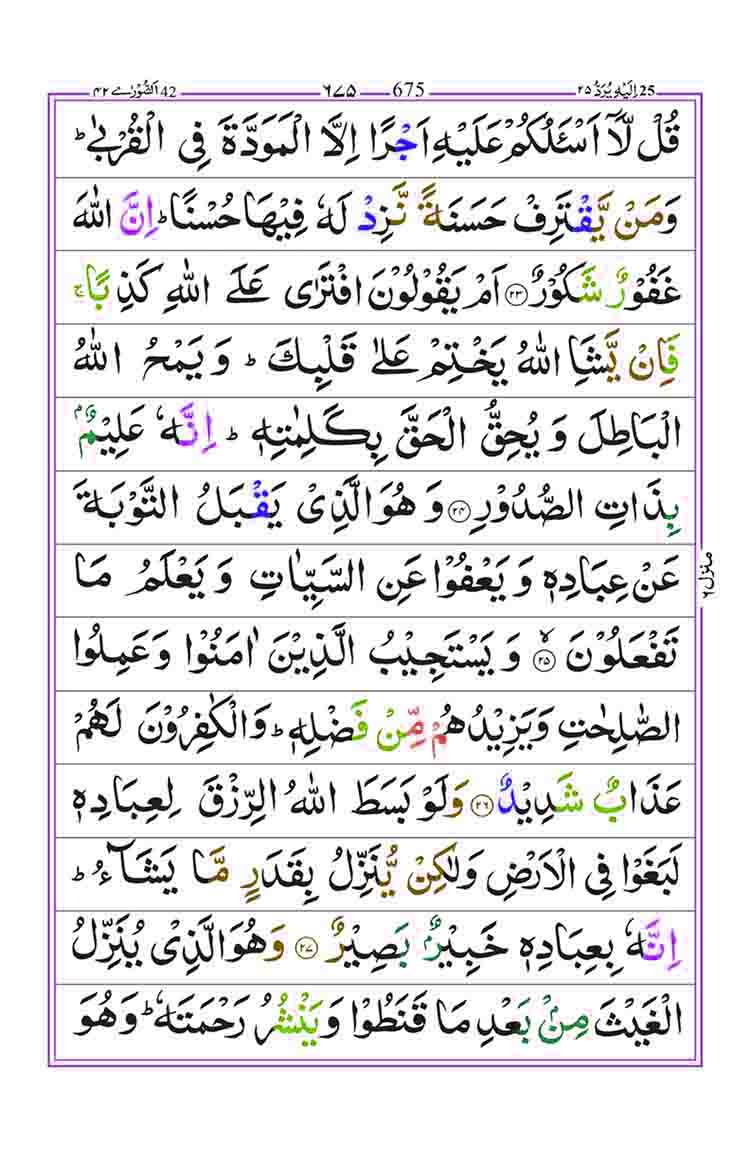 اَلشُّوْرٰى ٤٢ 42 ٦٧٥ 675 اِلَيْهِ يُرَدُّ ٢٥ 25
قُلْ لَّاۤ اَسْـَٔلُكُمْ عَلَيْهِ اَجْرًا اِلَّا الْمَوَدَّةَ فِى الْقُرْبٰىؕ
وَمَنْ يَّقْتَرِفْ حَسَنَةً نَّزِدْ لَهٗ فِيْهَا حُسْنًاؕ اِنَّ اللّٰهَ
غَفُوْرٌ شَكُوْرٌ ﴿٢٣﴾ اَمْ يَقُوْلُوْنَ افْتَرٰى عَلَى اللّٰهِ كَذِبًاۚ
فَاِنْ يَّشَاِ اللّٰهُ يَخْتِمْ عَلٰى قَلْبِكَؕ وَيَمْحُ اللّٰهُ
الْبَاطِلَ وَيُحِقُّ الْحَقَّ بِكَلِمٰتِهٖؕ اِنَّهٗ عَلِيْمٌۢ
بِذَاتِ الصُّدُوْرِ ﴿٢٤﴾ وَهُوَ الَّذِىْ يَقْبَلُ التَّوْبَةَ
عَنْ عِبَادِهٖ وَيَعْفُوْا عَنِ السَّيِّاٰتِ وَيَعْلَمُ مَا
تَفْعَلُوْنَۙ ﴿٢٥﴾ وَيَسْتَجِيْبُ الَّذِيْنَ اٰمَنُوْا وَعَمِلُوا
الصّٰلِحٰتِ وَيَزِيْدُهُمْ مِّنْ فَضْلِهٖؕ وَالْكٰفِرُوْنَ لَهُمْ
عَذَابٌ شَدِيْدٌ ﴿٢٦﴾ وَلَوْ بَسَطَ اللّٰهُ الرِّزْقَ لِعِبَادِهٖ
لَبَغَوْا فِى الْاَرْضِ وَلٰكِنْ يُّنَزِّلُ بِقَدَرٍ مَّا يَشَآءُؕ
اِنَّهٗ بِعِبَادِهٖ خَبِيْرٌۢ بَصِيْرٌ ﴿٢٧﴾ وَهُوَ الَّذِىْ يُنَزِّلُ
الْغَيْثَ مِنْۢ بَعْدِ مَا قَنَطُوْا وَيَنْشُرُ رَحْمَتَهٗؕ وَهُوَ
منزل ٦